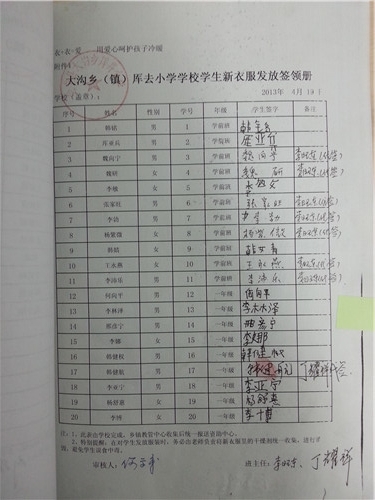 衣·衣·爱 用爱心呵护孩子冷暖
附件4:
大沟乡（镇）库去小学学校学生新衣服发放签领册
学校（盖章）： 2013年 4月19日
序号 姓名 性别 学号 年级 学生签字 备注
1 韩铭 男 1 学前班
2 厍亚兵 男 2 学前班 厍亚兵
3 魏向宇 男 3 学前班 魏向宇 (代签)
4 魏妍 女 4 学前班 魏妍 (代签)
5 李敏 女 5 学前班 李敏
6 张家旺 男 6 学前班 张家旺 (代签)
7 李勃 男 7 学前班 李勃 (代签)
8 杨紫薇 女 8 学前班 杨紫薇 (代签)
9 韩皓 女 9 学前班
10 王永燕 女 10 学前班 王永燕 (代签)
11 李沛乐 男 11 学前班 李沛乐 (代签)
12 何向平 男 12 一年级 何向平
13 李林泽 男 13 一年级 李林泽
14 邢彦宁 男 14 一年级
15 李娜 女 15 一年级 李娜
16 韩健权 男 16 一年级 韩健权
17 韩健航 男 17 一年级 韩健航 丁耀祥代签
18 李亚宁 男 18 一年级 李亚宁
19 杨舒惠 女 19 一年级 杨舒惠
20 李博 女 20 一年级
注：1、此表由学校完成，乡镇教管中心收集后统一报送咨询中心。
2、特别提醒：在对学生发放服装时，务必由老师负责将新衣服里的干燥剂统一收集，进行销
毁，避免学生误食中毒。
审核人： 班主任： 丁耀祥